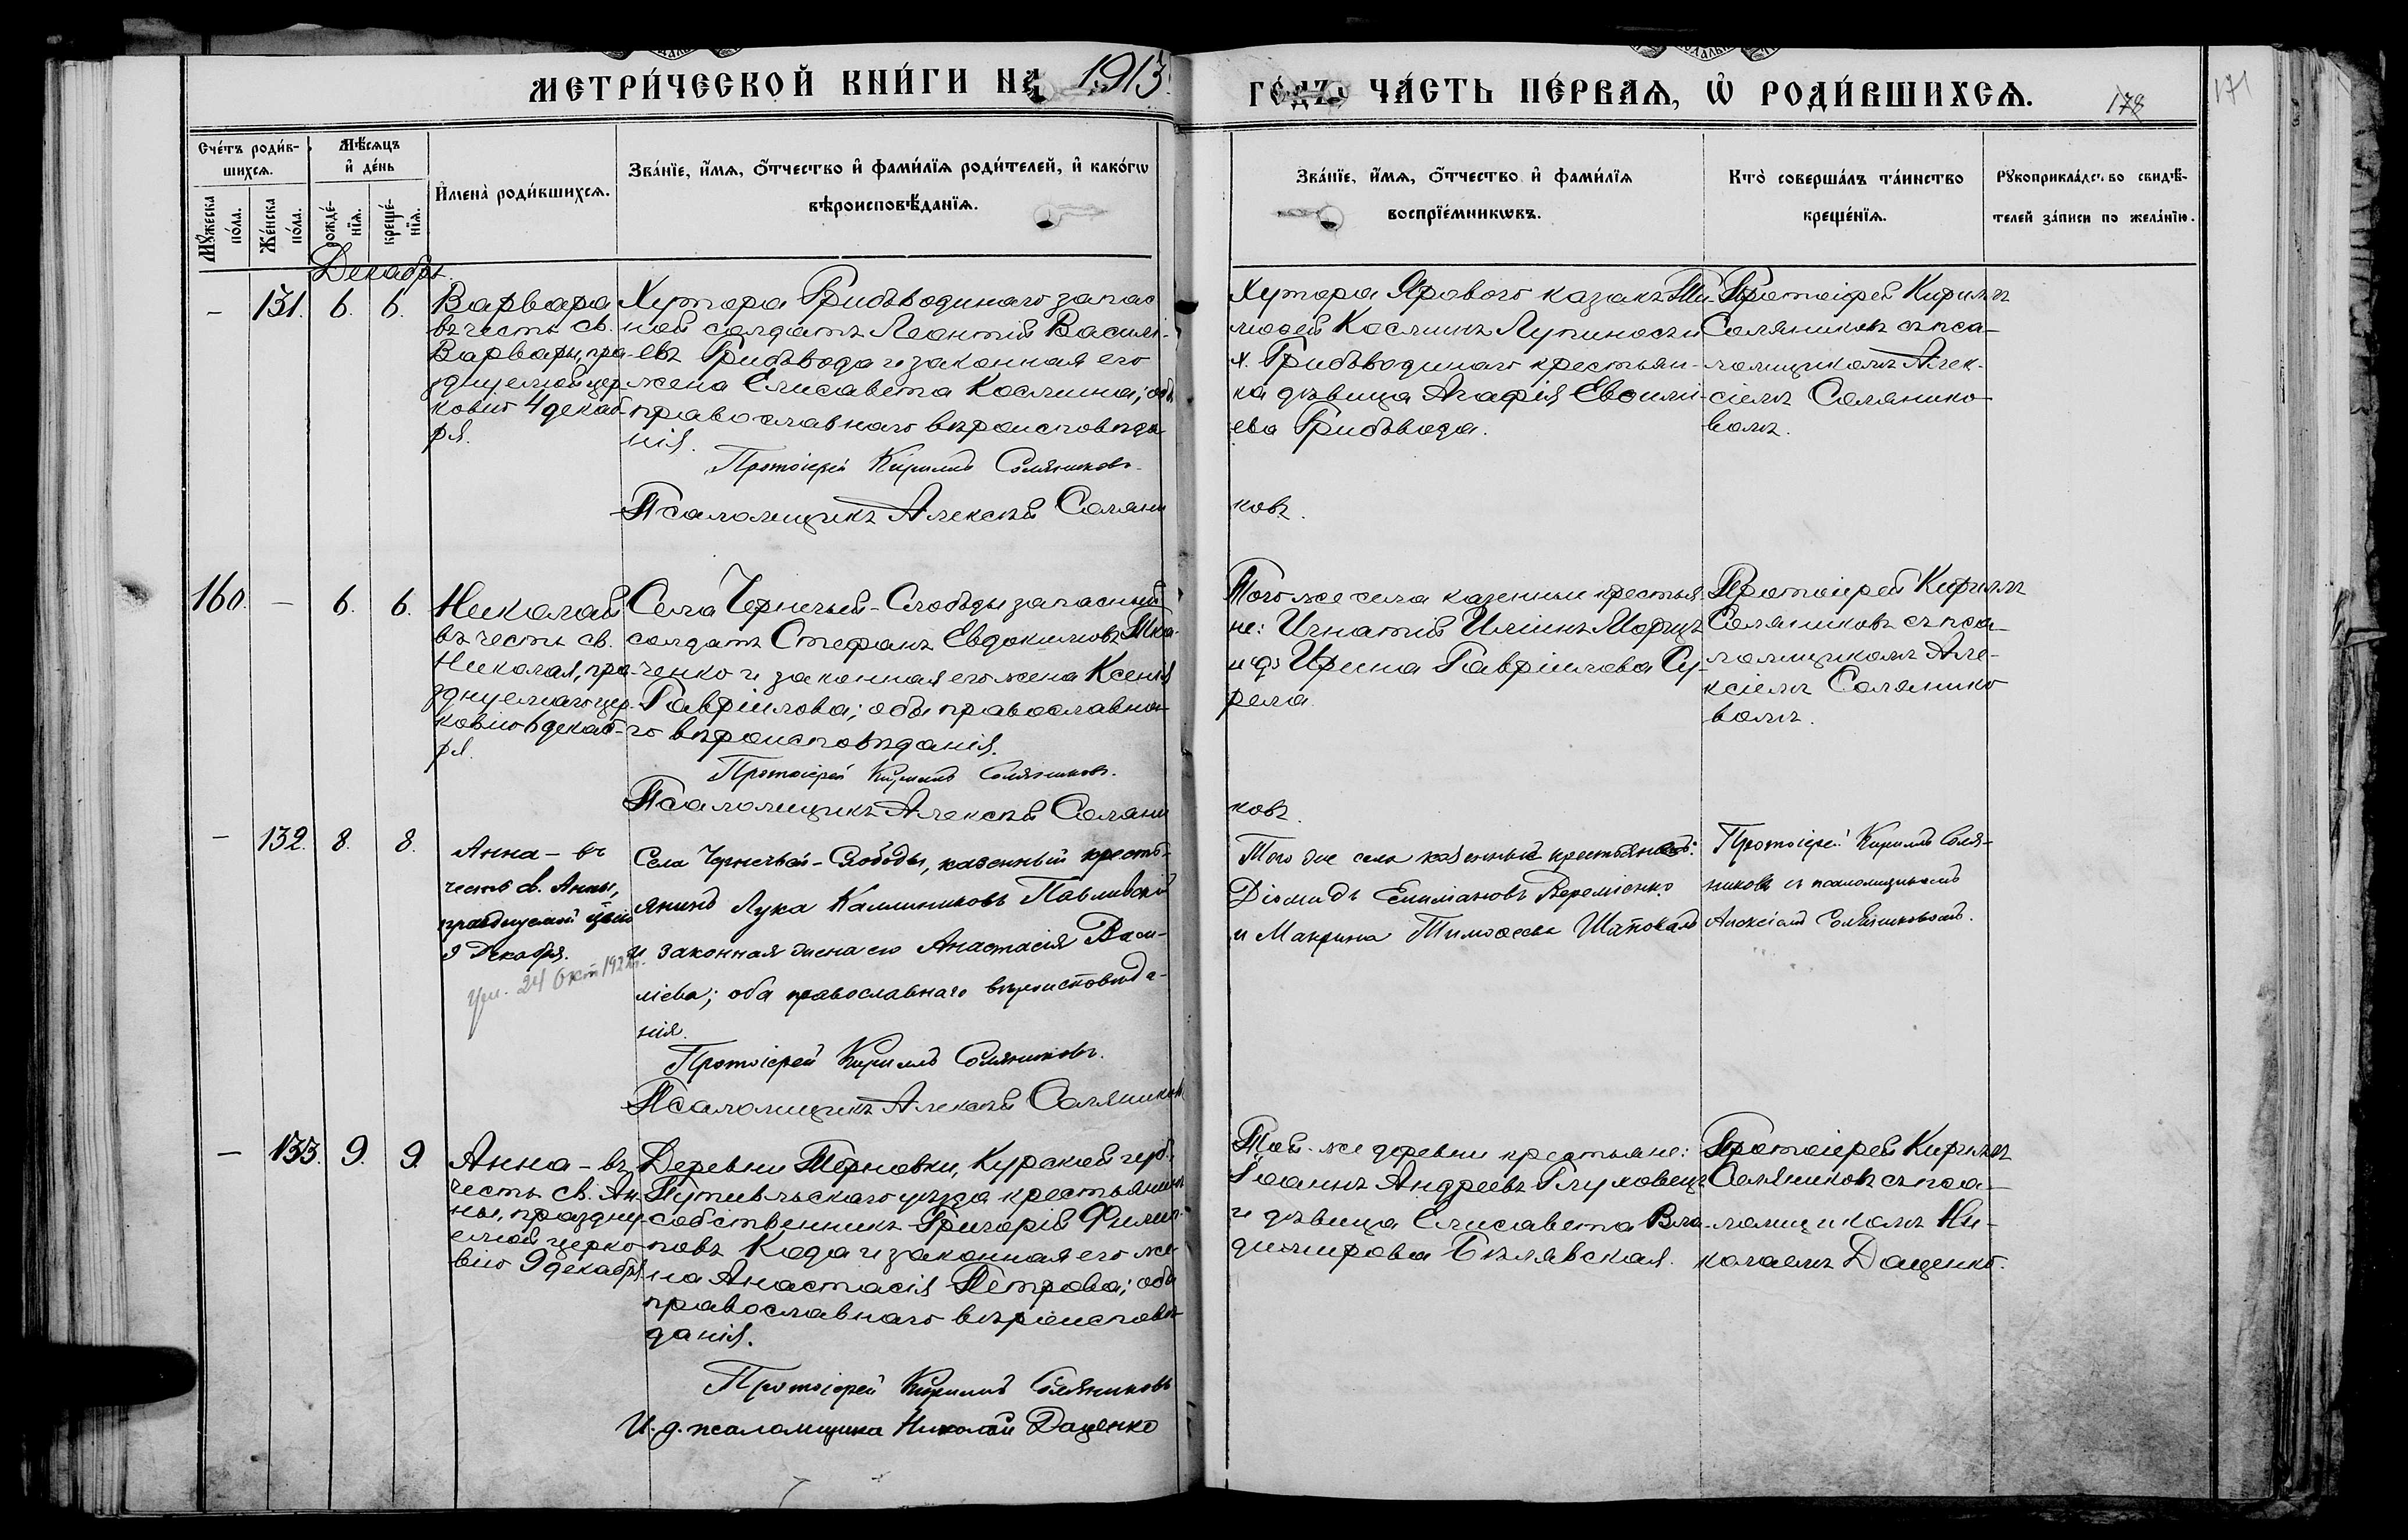 МЕТРИ́ЧЕСКОЙ КНИ́ГИ НА 1913 ГО́ДЪ, ЧА́СТЬ ПЕ́РВАѦ, Ѡ҆ РОДИ́ВШИХСѦ.
178
171
Сче́тъ роди́в-
шихсѧ.
Мѣ́сѧцъ
и҆ де́нь
Мꙋ́жеска
по́ла.
Же́нска
по́ла.
рожде́-
нїѧ.
креще́-
нїѧ.
И҆мена̀ роди́вшихсѧ.
Зва́нїе, и҆́мѧ, ѻ҆́тчество и҆ фами́лїѧ роди́телей, и҆ како́гѡ
вѣроисповѣ́данїѧ.
Зва́нїе, и҆́мѧ, ѻ҆́тчество и҆ фами́лїѧ
воспрїе́мникѡвъ.
Кто̀ соверша́лъ та́инство
креще́нїѧ.
Рꙋкоприкла́дство свидѣ́-
телей за́писи по жела́нїю.
Декабрь.
– 131. 6. 6.
Варвара
въ честь св.
Варвары, пра-
зднуемой цер
ковію 4 декаб-
ря.
Хутора Грибѣводинаго запас
ной солдатъ Леонтій Василі-
евъ Грибѣвода и законная его
жена Елисавета Косьмина; оба
православнаго вѣроисповѣда
нія.
Протоіерей Кириллъ Соляниковъ.
Псаломщикъ Алексѣй Соляни
ковъ.
Хутора Ярового казакъ Ти-
моѳей Косминъ Лупинось и
х. Грибѣводинаго крестьян-
ка дѣвица Агафія
ева Грибѣвода.
Протоіерей Кириллъ
Соляниковъ съ пса-
ломщикомъ Алек-
сіемъ Солянико
вымъ.
160. – 6. 6.
Николай
въ честь св.
Николая, пра-
зднуемаго цер-
ковію 6 декаб-
ря.
Села Чернечьей-Слободы запасный
солдатъ Стефанъ Евдокимовъ Тка-
ченко и законная его жена Ксенія
Гавріилова; оба православна-
го вѣроисповѣданія.
Протоіерей Кириллъ Соляниковъ.
Псаломщикъ Алексѣй Соляни
ковъ.
Того же села казенные крестья-
не: Игнатій Иліинъ Морицъ
и дѣ Ирина Гавріилова Су-
рела.
Протоіерей Кириллъ
Соляниковъ съ пса-
ломщикомъ Але-
ксіемъ Солянико
вымъ.
– 132. 8. 8.
Анна – въ
честь св. Анны,
празднуемой цвію
9 Декабря.
ум. 24 Окт 192
Села Чернечьей-Слободы, казенный кресть-
янинъ Лука Каллиниковъ Павливскій
и законная жена его Анастасія Васи-
ліева; оба православнаго вѣроисповѣда-
нія.
Протоіерей Кириллъ Соляниковъ.
Псаломщикъ Алексѣй Соляниковъ
Того же села казенный крестьянинъ:
Діомидъ Емиліановъ Вереміенко
и Макрина Тимоѳеева Шаповалъ
Протоіерей Кириллъ Соля-
никовъ съ псаломщикомъ
Алексіемъ Соляниковымъ.
– 133. 9. 9.
Анна – въ
честь св. Ан
ны, праздну-
емой церко-
вію 9 декабря
Деревни Терновки, Курской губ.
Путивльскаго уѣзда крестьянинъ
собственникъ Григорій Филип-
повъ Кода и законная его же-
на Анастасія Петрова; оба
православнаго вѣроисповѣ-
данія.
Протоіерей Кириллъ Соляниковъ
И. д. псаломщика Николай Даценко
Той-же деревни крестьяне:
Іоаннъ Андреевъ Глуховецъ
и дѣвица Елисавета Вла-
димирова Бѣлявская.
Протоіерей Кириллъ
Соляниковъ съ пса-
ломщикомъ Ни-
колаемъ Даценко.